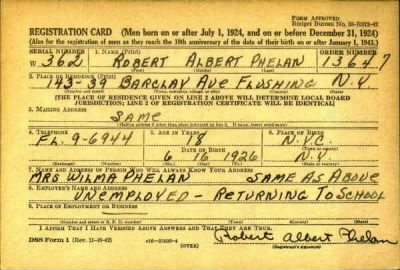 Form Approved
Budget Bureau No. 33-R012-42
REGISTRATION CARD (Men born on or after July 1, 1924, and on or before December 31, 1924)
(Also for the registration of men as they reach the 18th anniversary of the date of their birth on or after January 1, 1943.)
SERIAL NUMBER 1. NAME (Print) ORDER NUMBER
W 362 ROBERT ALBERT PHELAN 13647
(First) (Middle) (Last)
2. PLACE OF RESIDENCE (Print)
143-39 BARCLAY AVE FLUSHING N.Y.
[THE PLACE OF RESIDENCE GIVEN ON LINE 2 ABOVE WILL DETERMINE LOCAL BOARD
JURISDICTION; LINE 2 OF REGISTRATION CERTIFICATE WILL BE IDENTICAL]
3. MAILING ADDRESS
SAME
4. TELEPHONE 5. AGE IN YEARS 6. PLACE OF BIRTH
FL. 9-6944 18 N.Y.C
DATE OF BIRTH
6 16 1926 N.Y.
7. NAME AND ADDRESS OF PERSON WHO WILL ALWAYS KNOW YOUR ADDRESS
MRS WILMA PHELAN SAME AS ABOVE
8. EMPLOYER'S NAME AND ADDRESS
UNEMPLOYED - RETURNING TO SCHOOL
9. PLACE OF EMPLOYMENT OR BUSINESS
I AFFIRM THAT I HAVE VERIFIED ABOVE ANSWERS AND THAT THEY ARE TRUE.
DSS Form 1 (Rev. 11-16-42) (OVER) Robert Albert Phelan
(Registrant's signature)